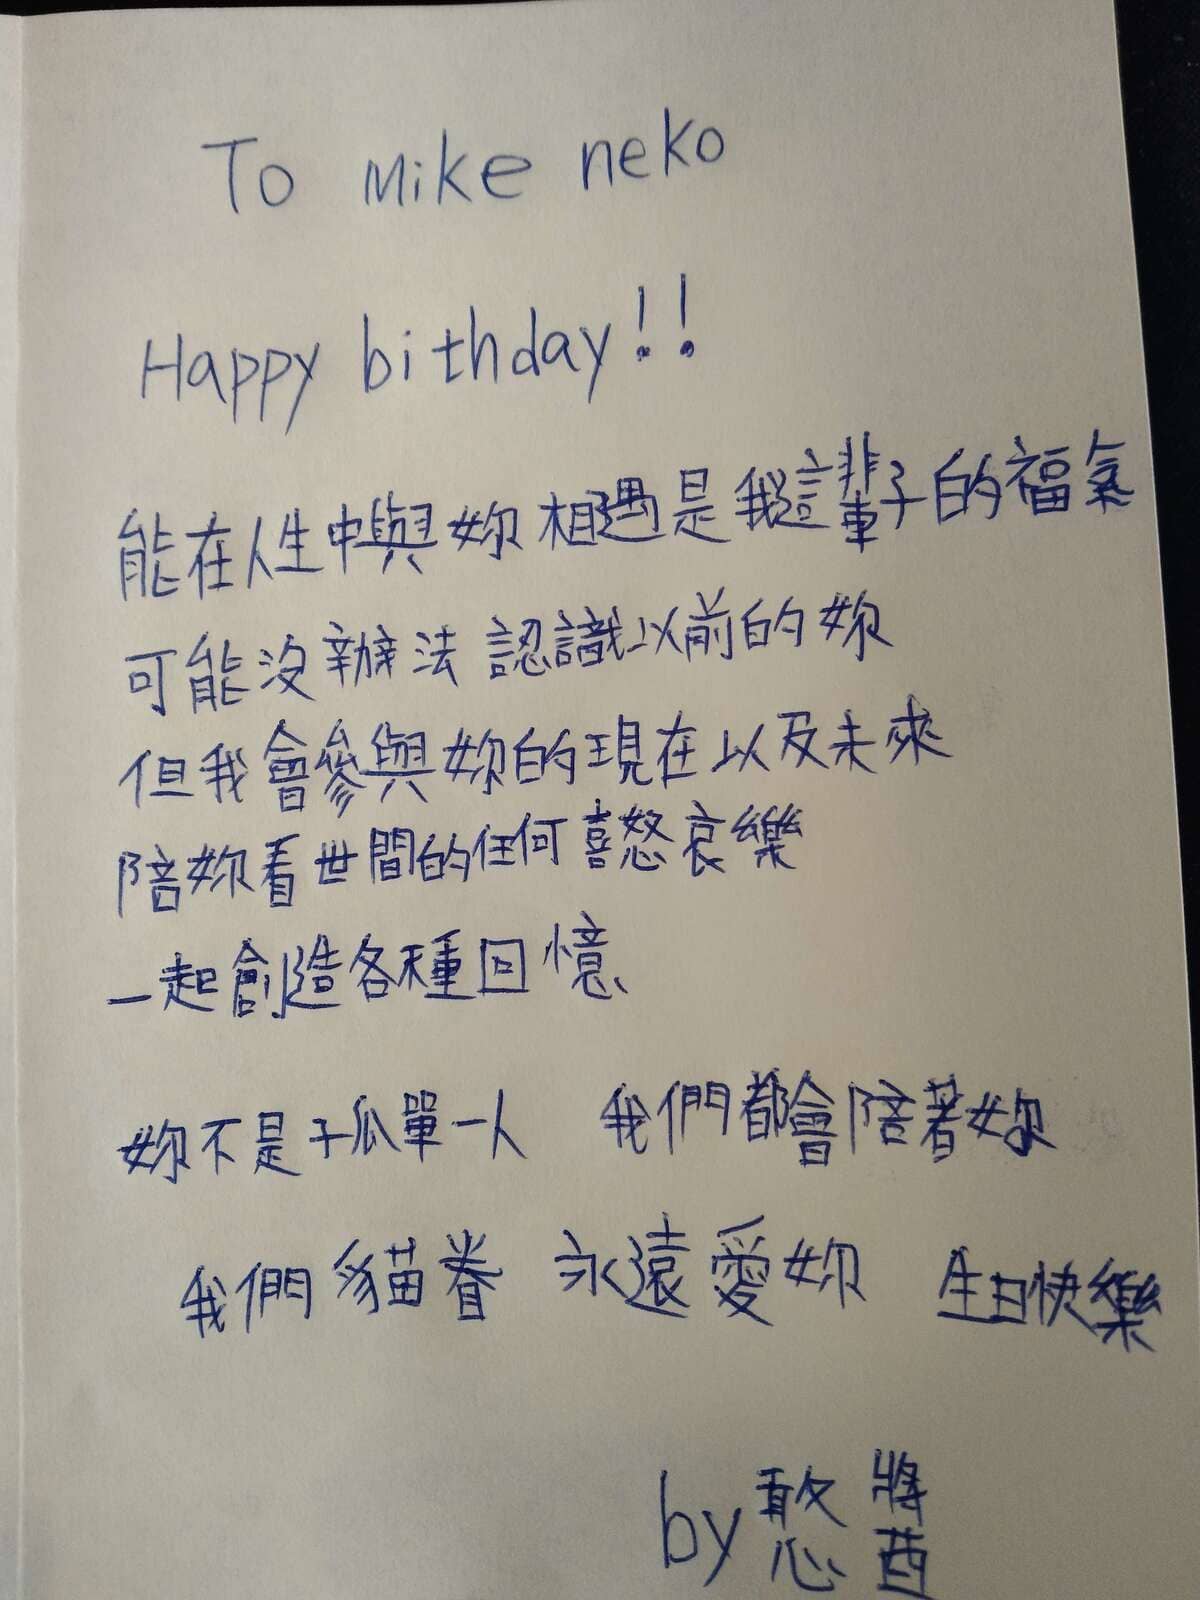 To Mike neko
Happy bithday!!
能在人生中與妳相遇是我這輩子的福氣
可能沒辦法認識以前的妳
但我會參與妳的現在以及未來
陪妳看世間的任何喜怒哀樂
一起創造各種回憶
妳不是孤單一人 我們都會陪著妳
我們貓眷 永遠愛妳 生日快樂
by憨醬